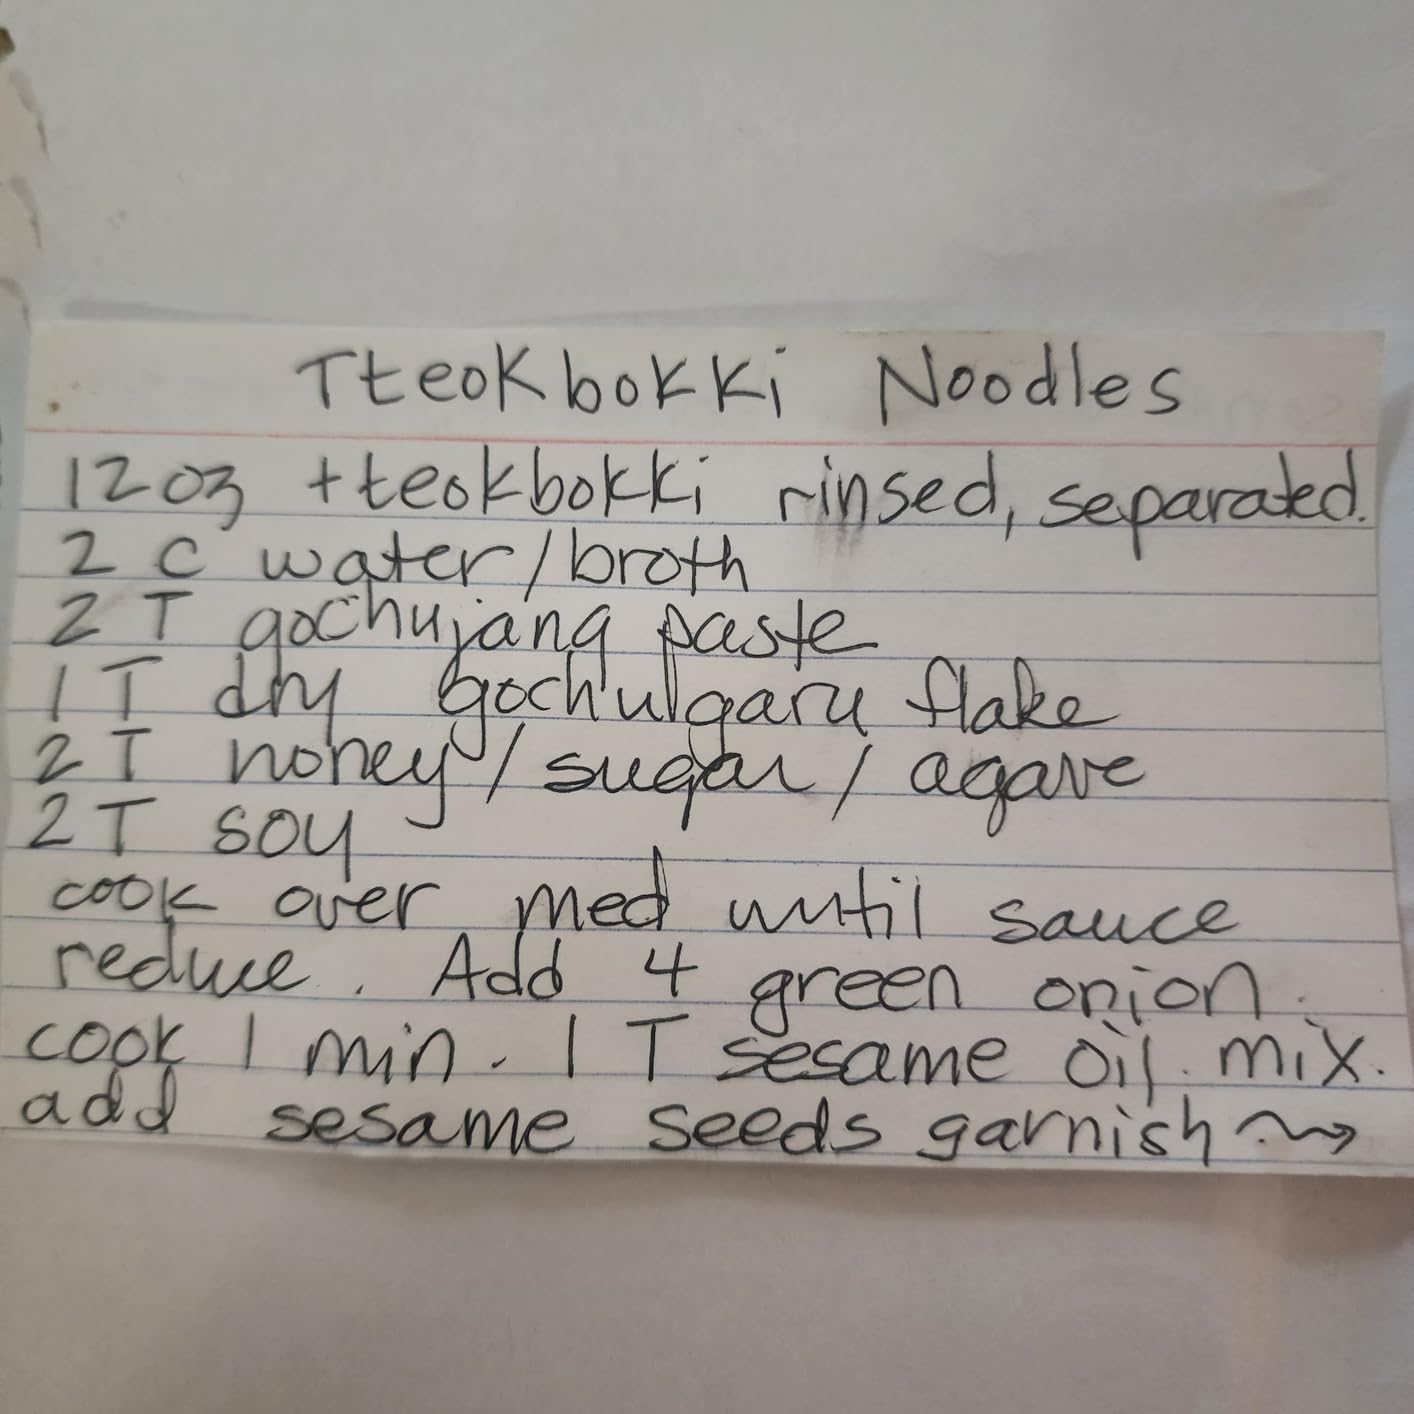 Tteokbokki Noodles
12 oz tteokbokki rinsed, separated.
2 C water/broth
2 T gochujang paste
1 T dry gochulgaru flake
2 T honey/sugar/agave
2 T soy
cook over med until sauce
reduce. Add 4 green onion.
cook 1 min. 1 T sesame oil. mix.
add sesame seeds garnish →